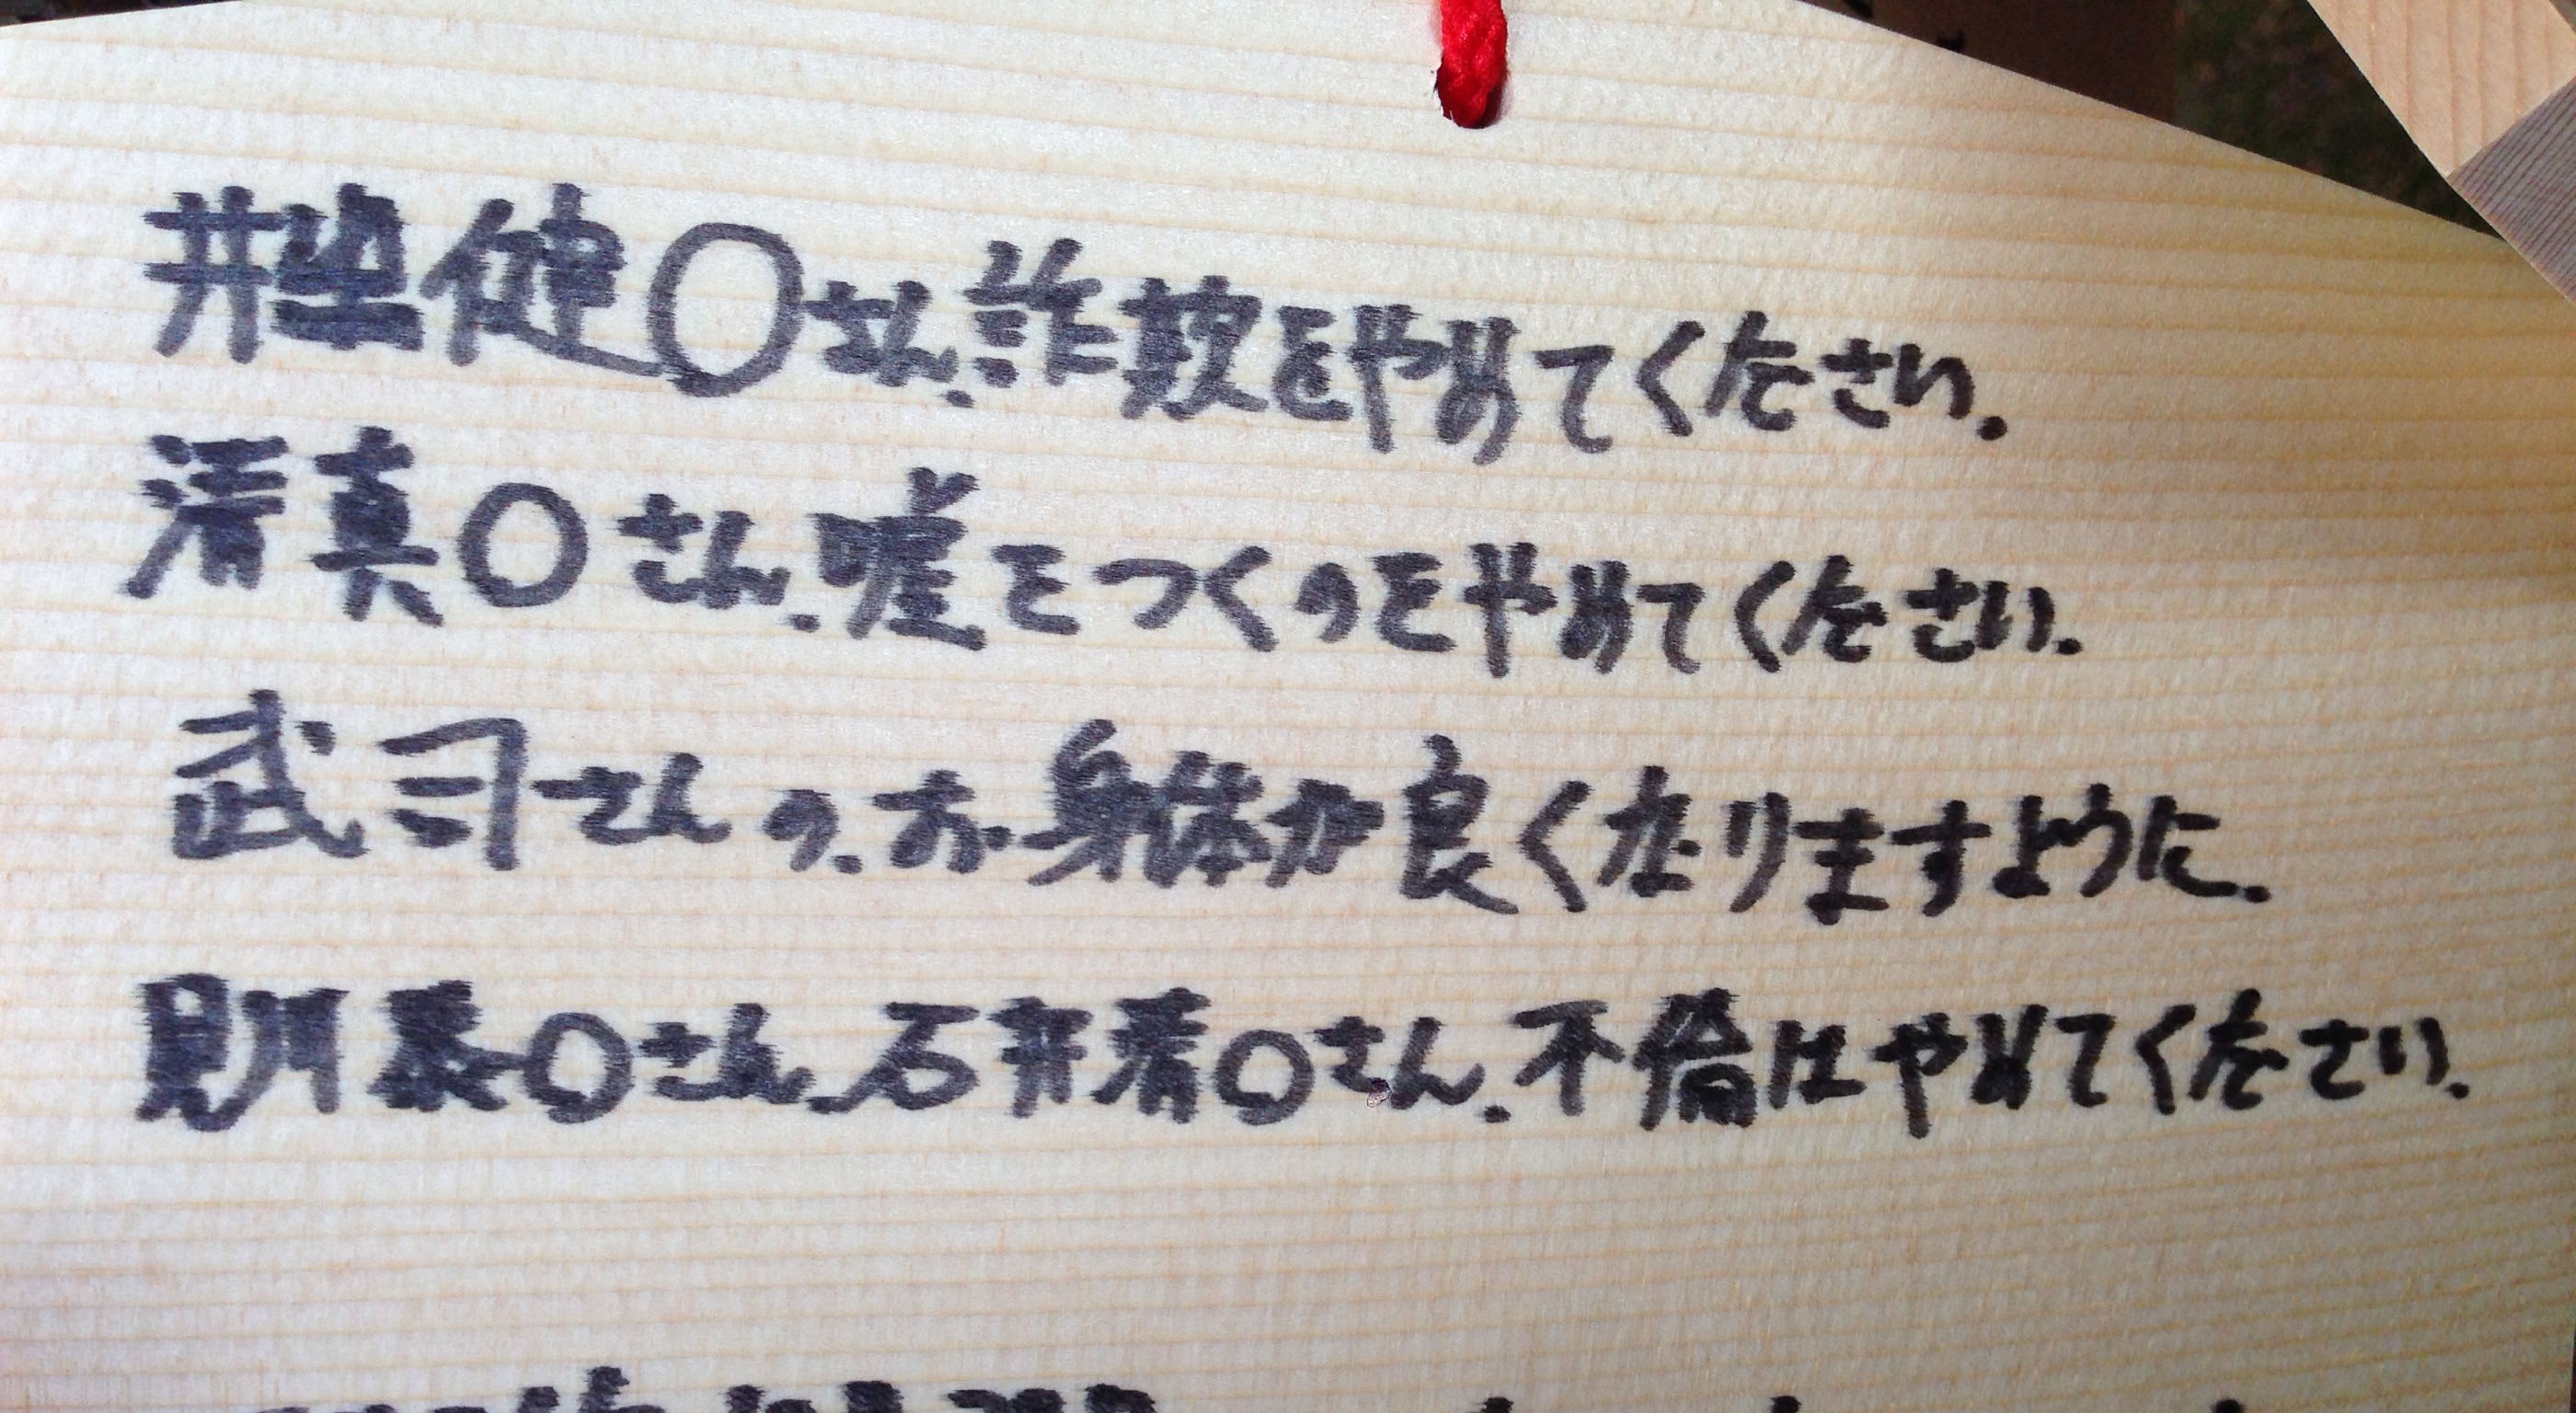 井埜健〇さん、詐欺をやめてください。
清真〇さん、嘘をつくのをやめてください。
武司さんの、お身体が良くなりますように。
則泰〇さん、石井清〇さん、不倫はやめてください。